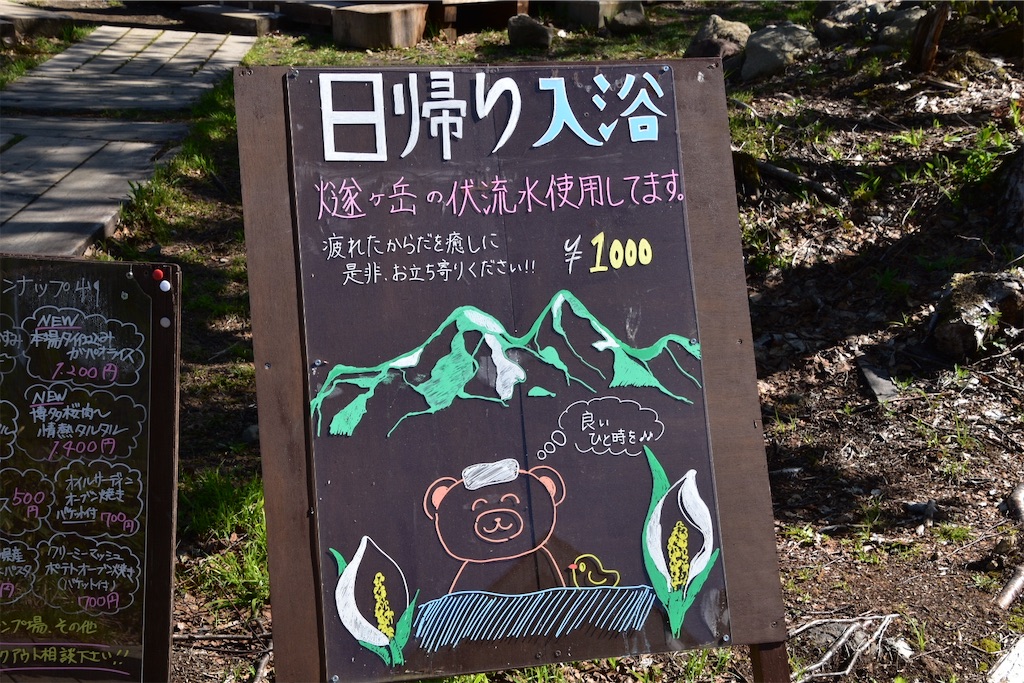 日帰り入浴
燧ヶ岳の伏流水使用してます。
疲れたからだを癒しに
是非、お立ち寄りください!!
¥1000
良い
ひと時を♪
NEW
ガパオライス
1.200円
NEW
博多桜肉へ
情熱タルタル
1.400円
500
円
オイルサーディン
オーブン焼き
バケット付 700円
クリーミーマッシュ
ポテトオーブン焼き
(バケット付)
700円
ンプ場、その他
クアウト相談下さい!!